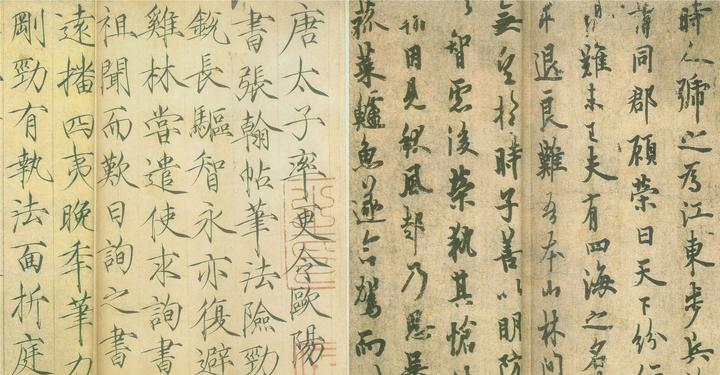 時人號之為江東步兵
謂同郡顧榮曰天下紛
難未已夫有四海之名
求退良難吾本山林間
無望於時子善以明防
智慮後榮執其愴
翰因見秋風起乃思吳
菰菜鱸魚遂命駕而
唐太子率更令歐陽
書張翰帖筆法險勁
銳長驅智永亦復避
雞林嘗遣使求詢書
祖聞而歎曰詢之書
遠播四夷晚年筆力
剛勁有執法面折庭